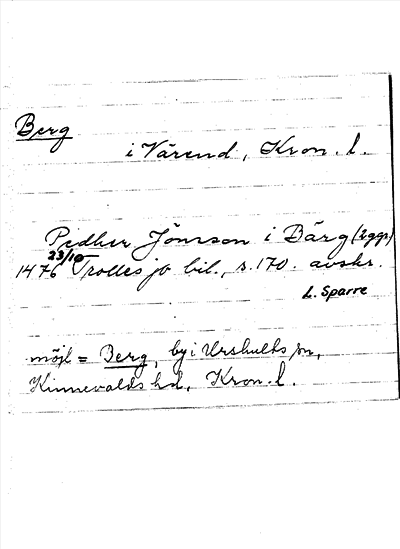 Berg
i Värend, Kron. l.
Pedher Jönsson i Bärg (2ggr)
1476 23/10 Trolles jb bil., s. 170. avskr.
L. Sparre
möjl = Berg, by i Urshults sn,
Kinnevalds hd, Kron. l.